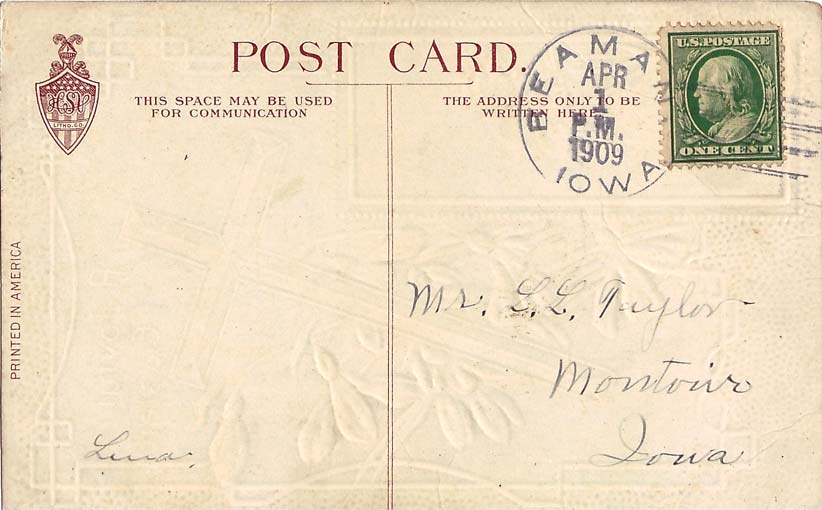 POST CARD.
THIS SPACE MAY BE USED
FOR COMMUNICATION
THE ADDRESS ONLY TO BE
WRITTEN HERE.
HSV
LITHO. CO.
BEAMAN
APR
1
P.M.
1909
IOWA
U.S. POSTAGE
ONE CENT
PRINTED IN AMERICA
Mr. L. L. Taylor
Montour
Iowa
Lena.